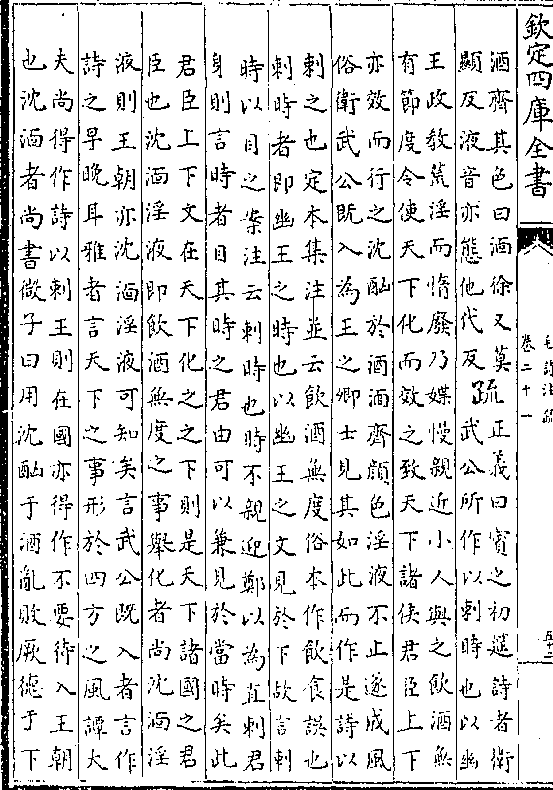 欽定四庫全書
毛詩注疏
卷二十一
酒齊其色曰湎徐又莫
顯反液音亦態他代反
疏
正義曰賓之初筵詩者衛
武公所作以刺時也以幽
王政教荒淫而惰廢乃媟慢親近小人與之飲酒無
有節度令使天下化而效之致天下諸侯君臣上下
亦效而行之沈酗於酒湎齊顔色淫液不止遂成風
俗衛武公既入為王之卿士見其如此而作是詩以
刺之也定本集注並云飲酒無度俗本作飲食誤也
刺時者即幽王之時也以幽王之文見於下故言刺
時以目之案注云刺時也時不親迎鄭以為直刺君
身則言時者目其時之君由可以兼見於當時矣此
君臣上下文在天下化之之下則是天下諸國之君
臣也沈湎淫液即飲酒無度之事舉化者尚沈湎淫
液則王朝亦沈湎淫液可知矣言武公既入者言作
詩之早晚耳雅者言天下之事形於四方之風譚大
夫尚得作詩以刺王則在國亦得作不要待入王朝
也沈湎者尚書微子曰用沈酗于酒亂敗厥德于下